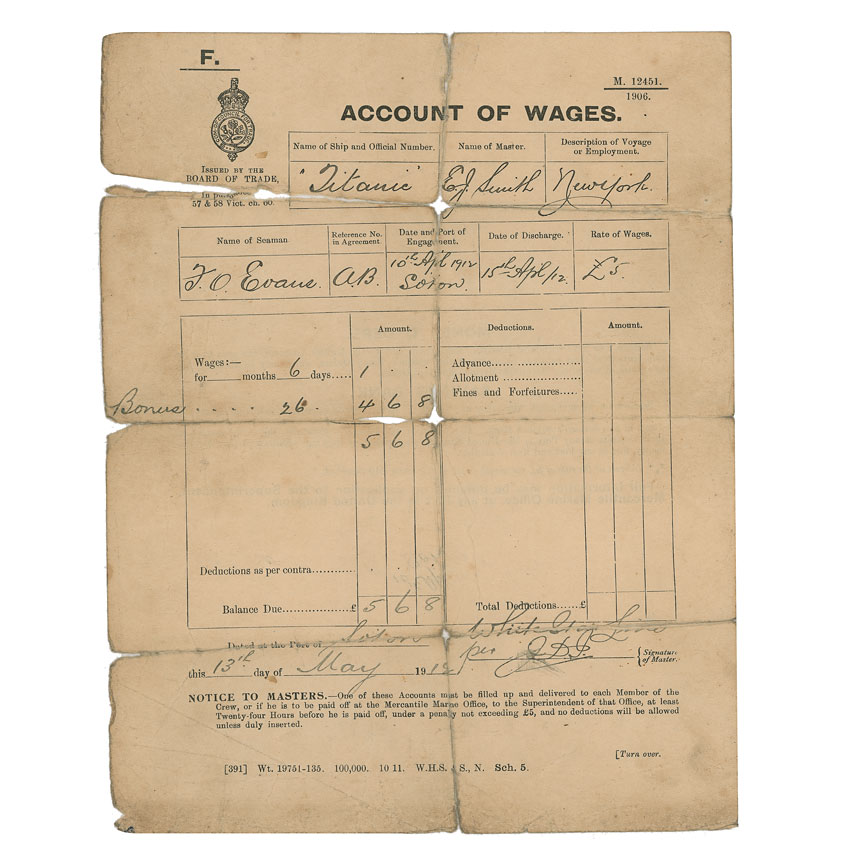 F.
M. 12451.
1906.
ACCOUNT OF WAGES.
ISSUED BY THE
BOARD OF TRADE,
57 & 58 Vict. ch. 60
Name of Ship and Official Number. Name of Master. Description of Voyage or Employment.
"Titanic" E.J. Smith New York.
Name of Seaman Reference No. in Agreement. Date and Port of Engagement. Date of Discharge. Rate of Wages.
F. O. Evans. A.B. 10th Apl 1912 Soton. 15th Apl/12. £5
Amount. Deductions. Amount.
Wages:— Advance......
for months 6 days..... 1 . . Allotment
Fines and Forfeitures....
Bonus . . . . 26. 4 6 8
5 6 8
Deductions as per contra............ . . .
Balance Due................£ 5 6 8 Total Deductions......£
Dated at the Port of Soton White Star Line
this 13th day of May 1912 per {Signature of Master.
NOTICE TO MASTERS.—One of these Accounts must be filled up and delivered to each Member of the
Crew, or if he is to be paid off at the Mercantile Marine Office, to the Superintendent of that Office, at least
Twenty-four Hours before he is paid off, under a penalty not exceeding £5, and no deductions will be allowed
unless duly inserted.
[Turn over.
[391] Wt. 19751-135. 100,000. 10 11. W.H.S. & S., N. Sch. 5.